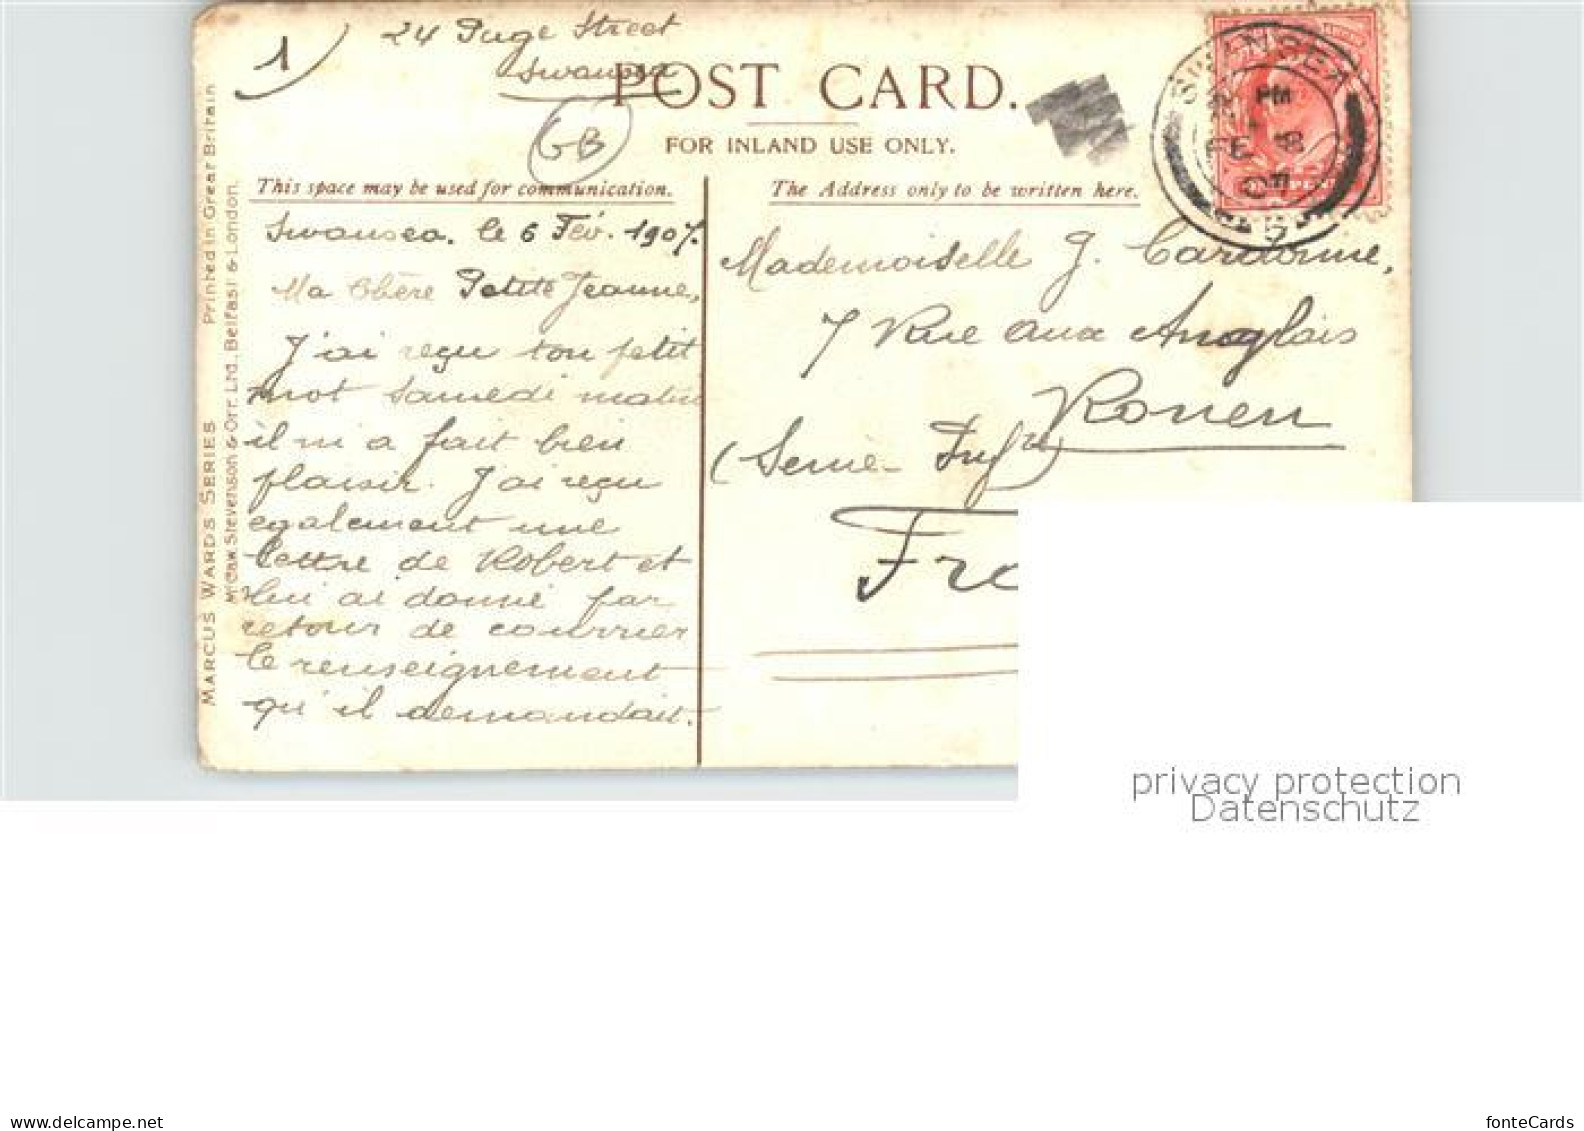 1
24 Page Street
Swansea
GB
POST CARD.
FOR INLAND USE ONLY.
SWANSEA
PM
FE 8
07
This space may be used for communication.
The Address only to be written here.
Swansea. le 6 Fév. 1907.
Ma Chère Petite Jeanne,
J'ai reçu ton petit
mot samedi matin
il m'a fait bien
plaisir. J'ai reçu
egalement une
lettre de Robert et
lui ai donné par
retour de courrier
le renseignement
qu'il demandait.
Mademoiselle J. Cardonne,
7 Rue aux Anglais
Rouen
(Seine Infre)
Fra
MARCUS WARDS SERIES Printed in Great Britain
McCaw, Stevenson & Orr, Ltd., Belfast & London.
privacy protection
Datenschutz
www.delcampe.net
fonteCards